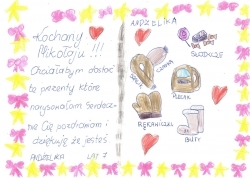 Kochany
Mikołaju !!!
Chciałabym dostać
te prezenty które
narysowałam Serdecz-
nie Cię pozdrawiam i
dziękuję że jesteś
ANDŻELIKA LAT 7
ANDŻELIKA
SŁODYCZE
PLECAK
RĘKAWICZKI
BUTY